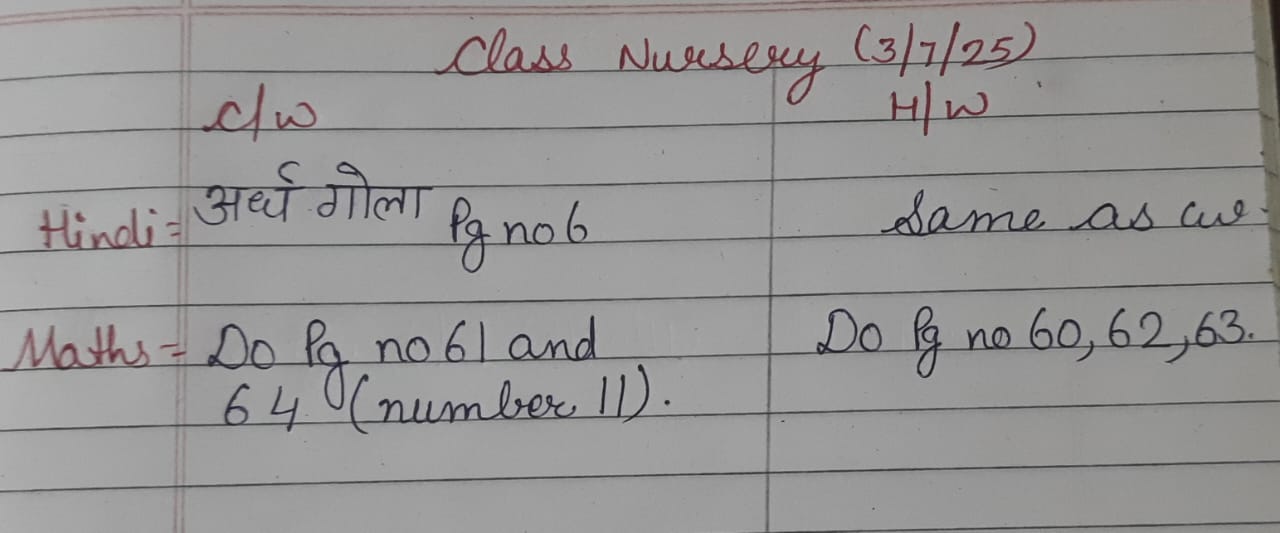 Class Nursery (3/7/25)
C/W H/W
Hindi = अर्ध गोला Pg no 6 Same as cw.
Maths = Do Pg no 61 and Do Pg no 60, 62, 63.
64 (number 11).